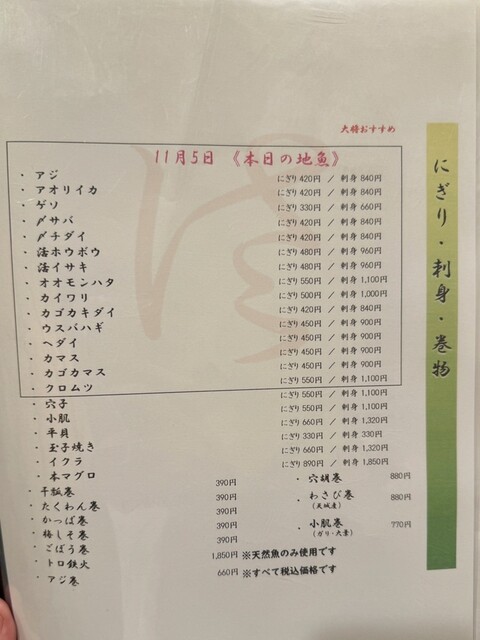 大将おすすめ
にぎり・刺身・巻物
11月5日 《本日の地魚》
・アジ にぎり 420円 / 刺身 840円
・アオリイカ にぎり 420円 / 刺身 840円
・ゲソ にぎり 330円 / 刺身 660円
・〆サバ にぎり 420円 / 刺身 840円
・〆チダイ にぎり 420円 / 刺身 840円
・活ホウボウ にぎり 480円 / 刺身 960円
・活イサキ にぎり 480円 / 刺身 960円
・オオモンハタ にぎり 550円 / 刺身 1,100円
・カイワリ にぎり 500円 / 刺身 1,000円
・カゴカキダイ にぎり 420円 / 刺身 840円
・ウスバハギ にぎり 450円 / 刺身 900円
・ヘダイ にぎり 450円 / 刺身 900円
・カマス にぎり 450円 / 刺身 900円
・カゴカマス にぎり 450円 / 刺身 900円
・クロムツ にぎり 550円 / 刺身 1,100円
・穴子 にぎり 550円 / 刺身 1,100円
・小肌 にぎり 550円 / 刺身 1,100円
・平貝 にぎり 660円 / 刺身 1,320円
・玉子焼き にぎり 330円 / 刺身 330円
・イクラ にぎり 660円 / 刺身 1,320円
・本マグロ にぎり 890円 / 刺身 1,850円
・干瓢巻 390円
・たくわん巻 390円
・かっぱ巻 390円
・梅しそ巻 390円
・ごぼう巻 390円
・トロ鉄火 1,850円
・アジ巻 660円
・穴胡巻 880円
・わさび巻 880円
(天城産)
・小肌巻 770円
(ガリ・大葉)
※天然魚のみ使用です
※すべて税込価格です